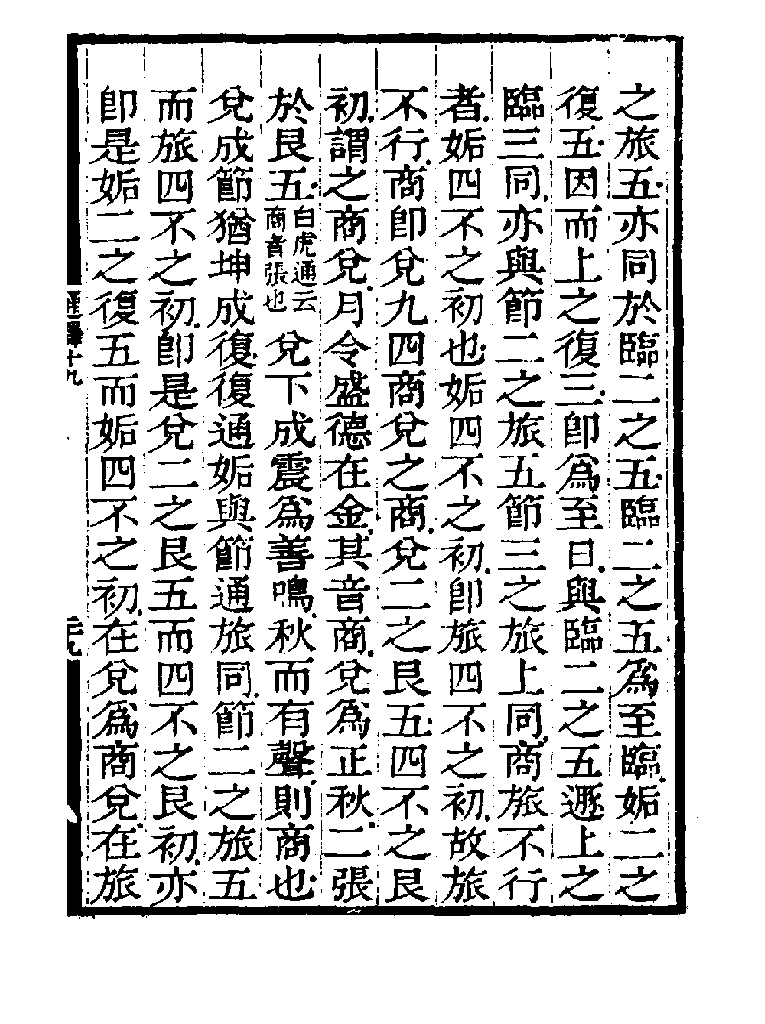 之旅五亦同於臨二之五臨二之五爲至臨姤二之
復五因而上之復三卽爲至日與臨二之五遯上之
臨三同亦與節二之旅五節三之旅上同商旅不行
者姤四不之初也姤四不之初卽旅四不之初故旅
不行商卽兌九四商兌之商兌二之艮五四不之艮
初謂之商兌月令盛德在金其音商兌爲正秋二張
於艮五白虎通云商音張也兌下成震爲善鳴秋而有聲則商也
兌成節猶坤成復復通姤與節通旅同節二之旅五
而旅四不之初卽是兌二之艮五而四不之艮初亦
卽是姤二之復五而姤四不之初在兌爲商兌在旅
通釋十九